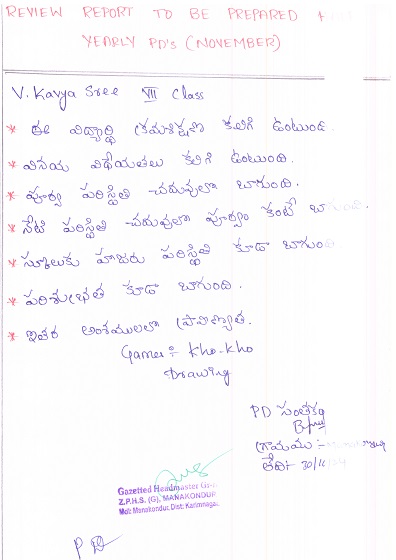 REVIEW REPORT TO BE PREPARED
YEARLY PD's (NOVEMBER)
V. Kavya Sree VII Class
* ఈ విద్యార్థి క్రమశిక్షణ కలిగి ఉంటుంది.
* వినయ విధేయతలు కలిగి ఉంటుంది.
* పూర్వ పరిస్థితి చదువులో బాగుంది.
* నేటి పరిస్థితి చదువులో పూర్వం కంటే
* స్కూలుకు హాజరు పరిస్థితి కూడా బాగుంది
* పరిశుభ్రత కూడా బాగుంది.
* ఇతర అంశములలో ప్రావీణ్యత.
Games :- Kho-kho
Drawing
PD సంతకం
గ్రామము :-
తేది:- 30/11/
Gazetted Headmaster
Z.P.H.S. (G), MANAKONDUR
Mdl: Manakondur, Dist: Karimnagar.
PD